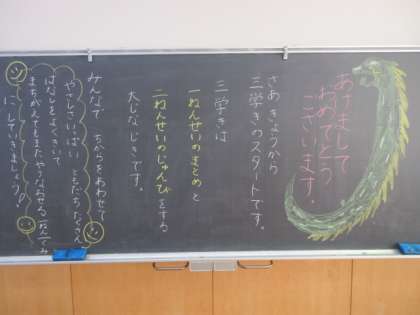 あけまして
おめでとう
ございます。
さあ きょうから
三学きのスタートです。
三学きは
一ねんせいのまとめと
二ねんせいのじゅんびをする
大じなじきです。
みんなで ちからをあわせて
やさしさいっぱい ともだちたくさん
はなしをよくきいて
まちがえてもまた
にしていきましょう!